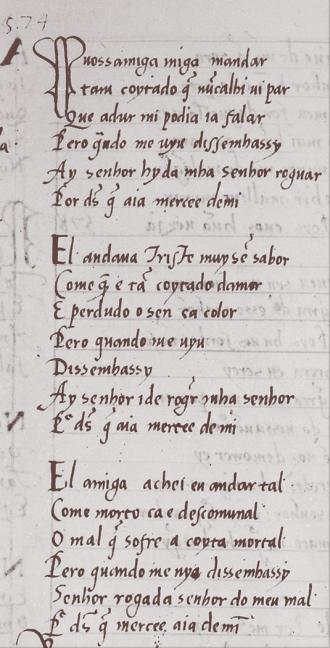 574
Uossamiga miga mandar
tam coytado q̃ nũcalhi ui par
Que adur mi podia ia falar
Pero q̃ndo me uyu dissemhassy
Ay senhor hyda mha senhor roguar
Por ds̃ q̃ aia mercee demi
El andaua Triste muysẽ sabor
Come q̃ e tã coytado damor
E perdudo o sen ea color
Pero quando me uyu
Dissemhassy
Ay senhor ide rogr̃ mha senhor
P̃ ds̃ q̃ aia mercee demi
El amiga achei eu andar tal
Come morto ca e descomunal
O mal q̃ sofre a coyta mortal
Pero quando me uyo dissemhassy
Senhor rogada senhor do meu mal
P̃ ds̃ q̃ mercee aia demĩ